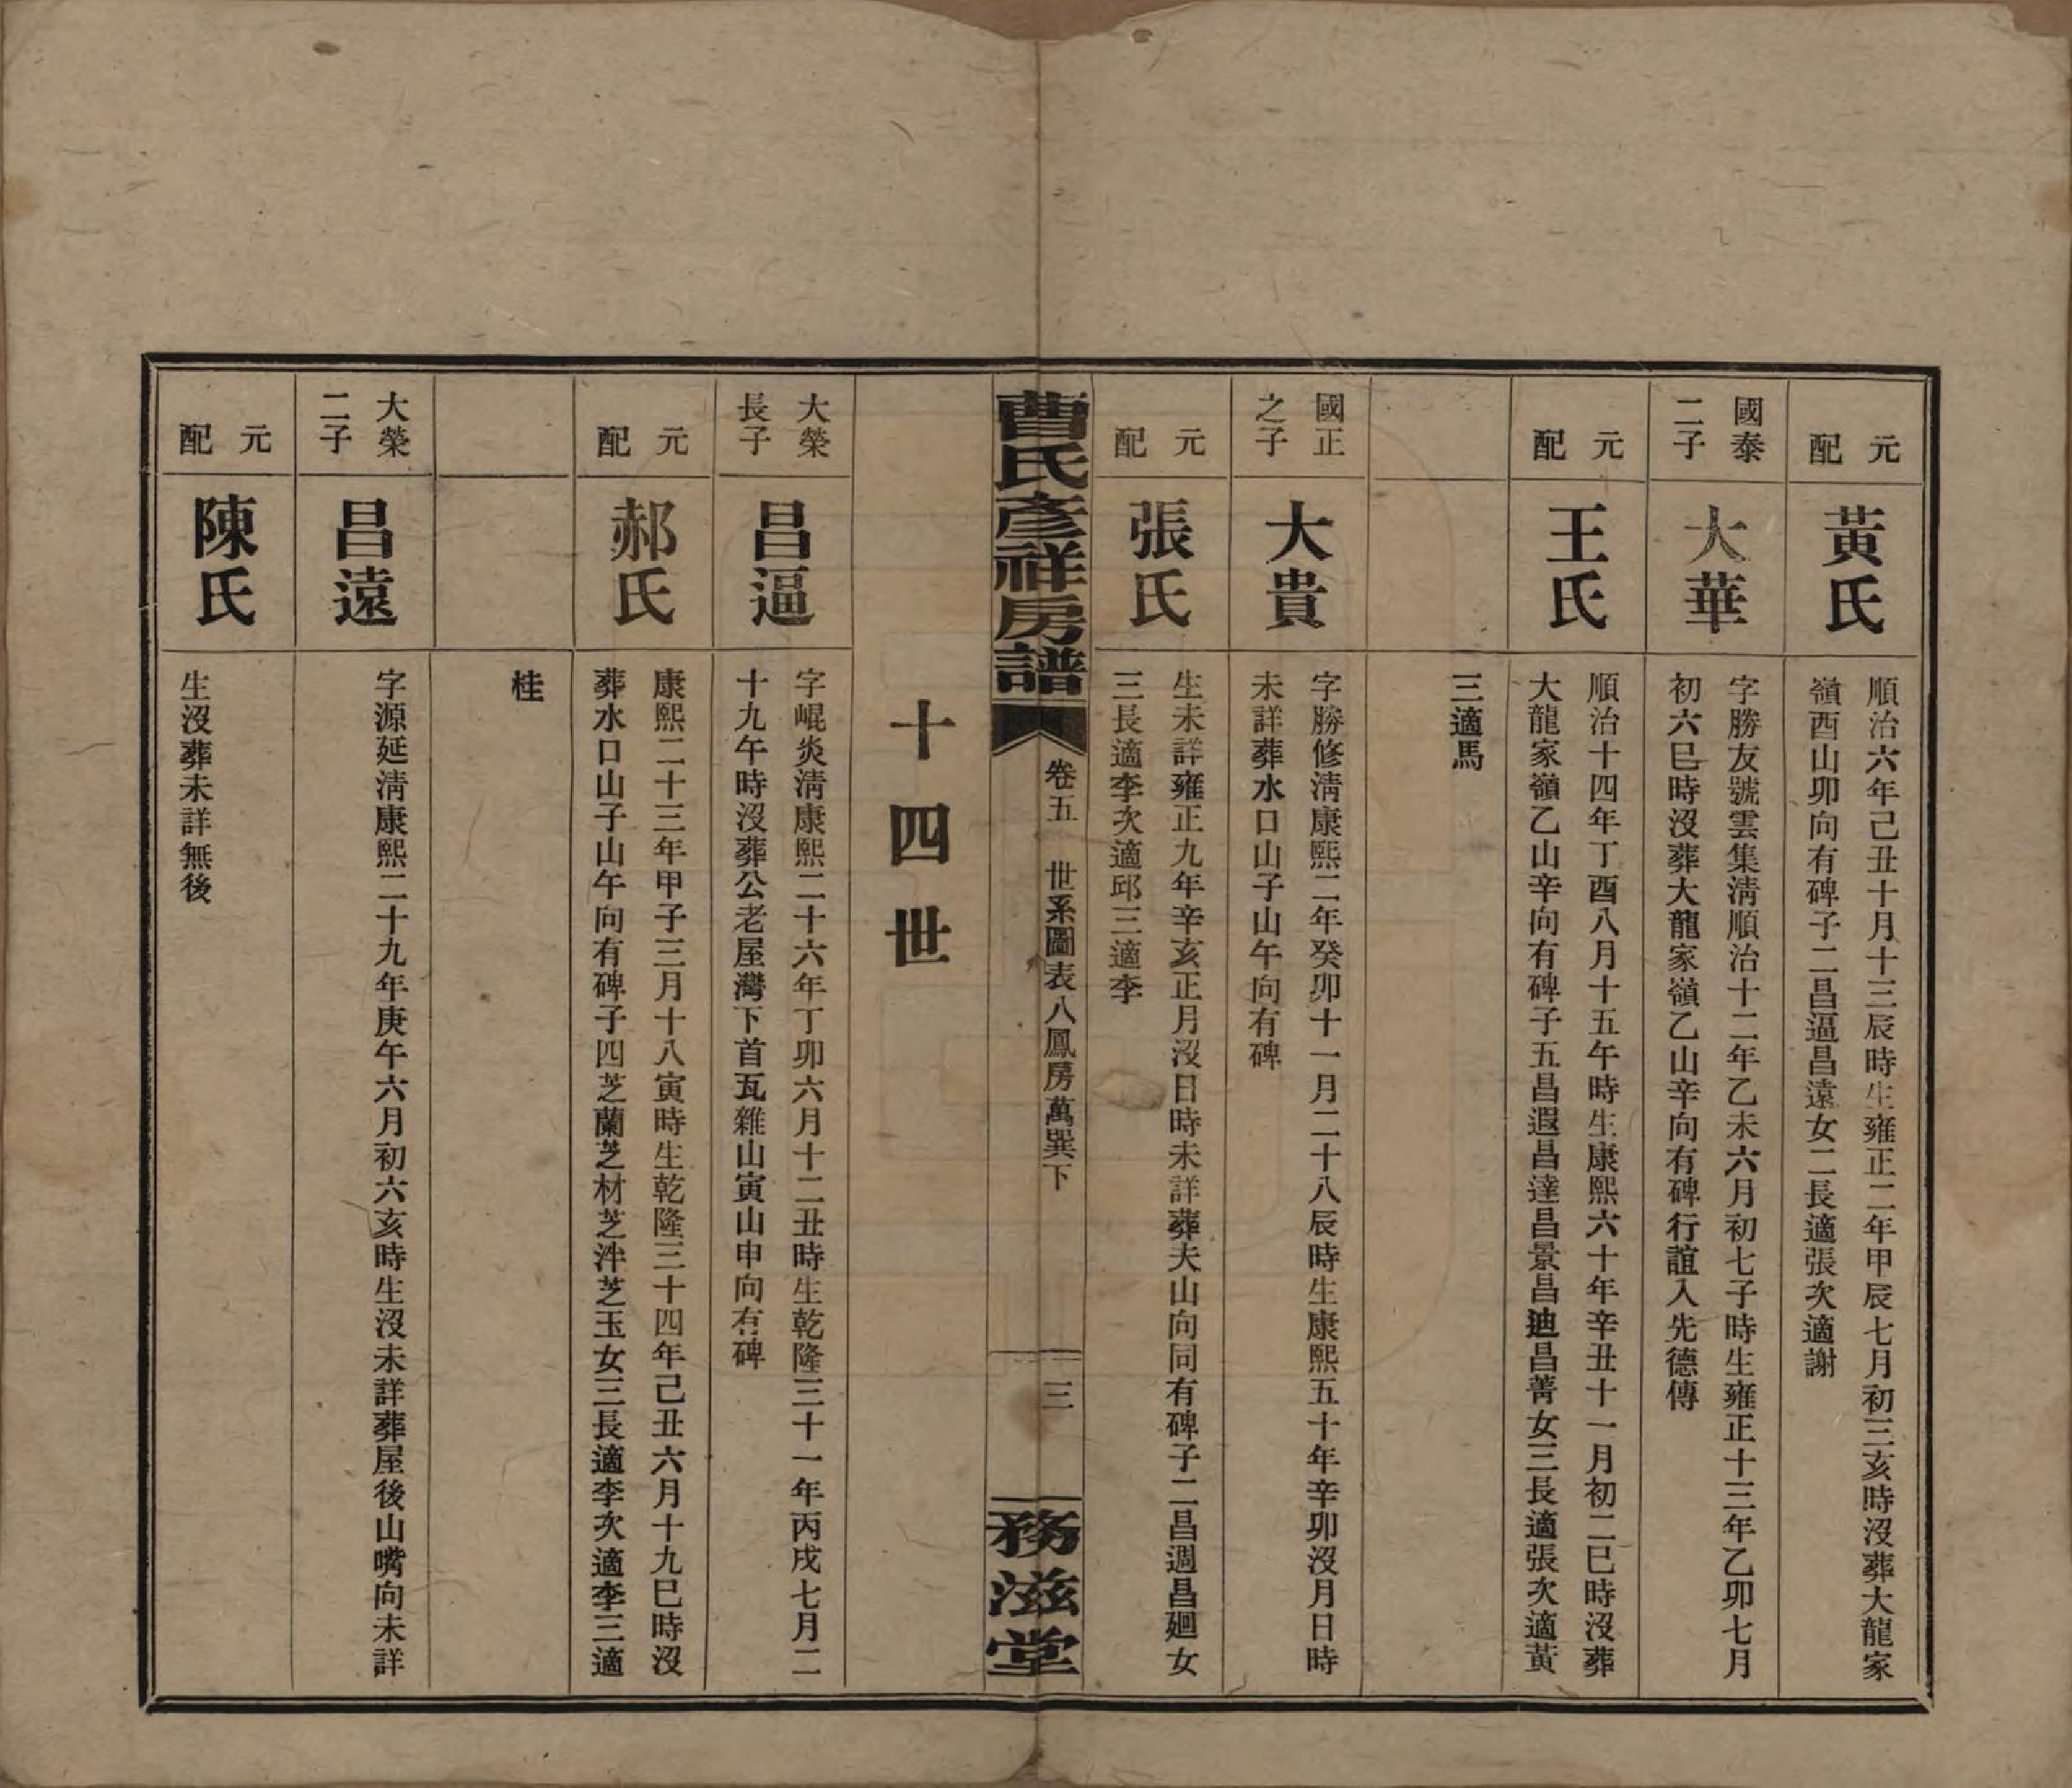 元配
黃氏
順治六年己丑十月十三辰時生雍正二年甲辰七月初三亥時沒葬大龍家
嶺酉山卯向有碑子二昌逼昌遠女二長適張次適謝
國泰
二子
大華
字勝友號雲集淸順治十二年乙未六月初七子時生雍正十三年乙卯七月
初六巳時沒葬大龍家嶺乙山辛向有碑行誼入先德傳
元配
王氏
順治十四年丁酉八月十五午時生康熙六十年辛丑十一月初二巳時沒葬
大龍家嶺乙山辛向有碑子五昌遐昌達昌景昌迪昌菁女三長適張次適黃
三適馬
國正
之子
大貴
字勝修淸康熙二年癸卯十一月二十八辰時生康熙五十年辛卯沒月日時
未詳葬水口山子山午向有碑
元配
張氏
生未詳雍正九年辛亥正月沒日時未詳葬夫山向同有碑子二昌週昌廻女
三長適李次適邱三適李
曹氏彥祥房譜
卷五
世系圖表八鳳房萬巽下
三
務滋堂
十四世
大榮
長子
昌逼
字崐炎淸康熙二十六年丁卯六月十二丑時生乾隆三十一年丙戌七月二
十九午時沒葬公老屋灣下首瓦雜山寅山申向有碑
元配
郝氏
康熙二十三年甲子三月十八寅時生乾隆三十四年己丑六月十九巳時沒
葬水口山子山午向有碑子四芝蘭芝材芝泮芝玉女三長適李次適李三適
桂
大榮
二子
昌遠
字源延淸康熙二十九年庚午六月初六亥時生沒未詳葬屋後山嘴向未詳
元配
陳氏
生沒葬未詳無後